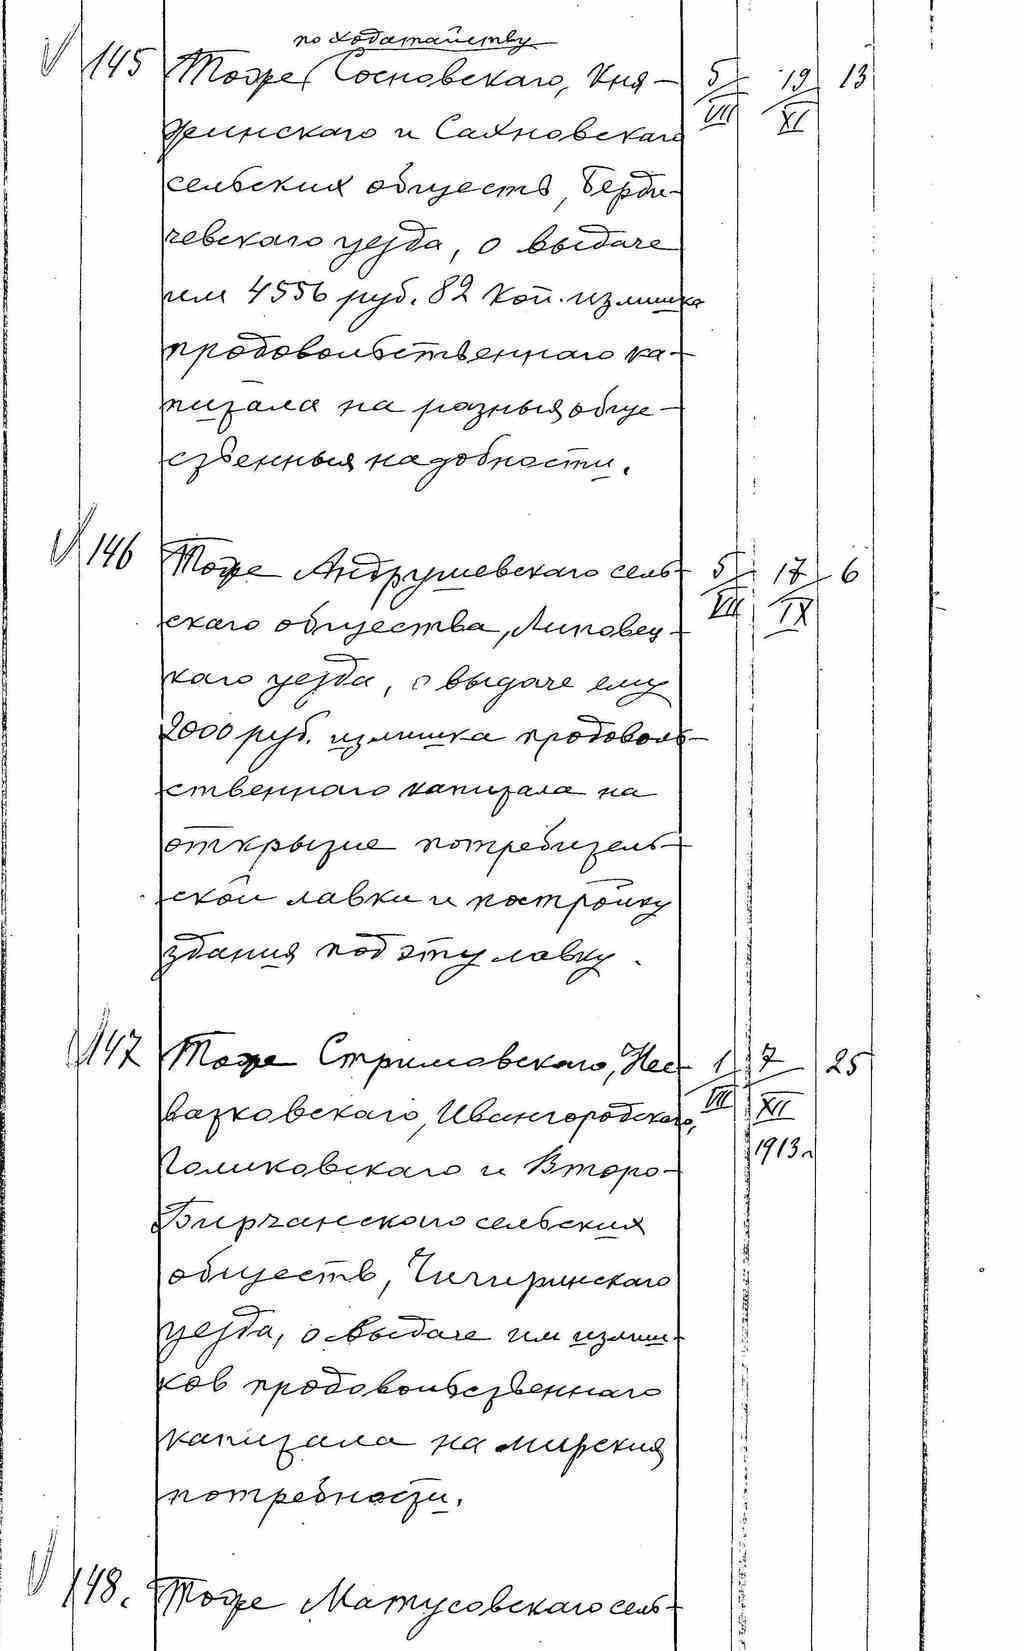 по ходатайству
145 Тоже Сосновскаго, Кня- 5/VII 19/XI 13
жинскаго и Сахновскаго
сельских обществ, Берди-
чевскаго уезда, о выдаче
им 4556 руб. 82 коп. излишка
продовольственнаго ка-
питала на разныя обще-
ственныя надобности.
146 Тоже Андрушевскаго сель- 5/VII 17/IX 6
скаго общества, Липовец-
каго уезда, о выдаче ему
2000 руб. излишка продоволь-
ственнаго капитала на
открытие потребитель-
ской лавки и постройку
здания под эту лавку.
147 Тоже Стримовскаго, Нес- 1/VII 7/XII 25
ватковскаго, Ивангородскаго, 1913 г
Голиковскаго и Второ-
Бирчанскаго сельских
обществ, Чигиринскаго
уезда, о выдаче им излиш-
ков продовольственнаго
капитала на мирския
потребности.
148. Тоже Матусовскаго сель-